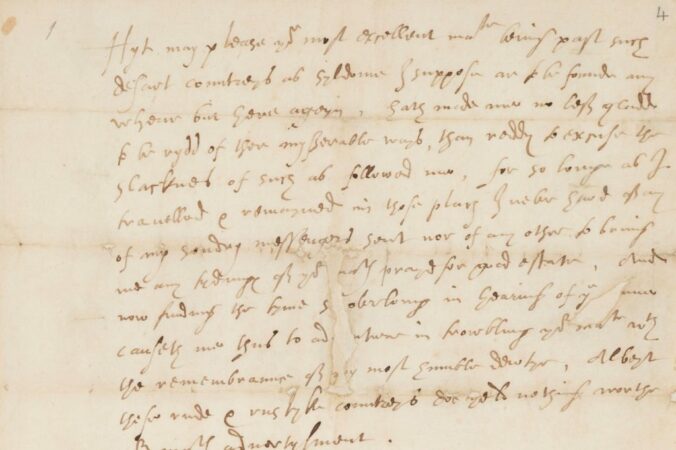 4
Hyt may please yor most excellent matie being past such
desart countreys as syldome I suppose are to be founde any
wheare but here ageyn, hath made me no less gladde
to be rydd of there mysserable ways, than reddy to excuse the
slacknes of such as followed me, for so longe as I
travelled & remayned in those places I never hard of any
of my sondry messengers sent nor of any other to bring
me any tydings of yor most prayed for good estate, And
now finding the tyme so overlong in hearing of ye same
causeth me thus to adventure in trowbling yor matie with
the remembrance of my most humble dewtye, Albeyt
these rude & rustyke countreys doe yeld nothing worthe
advertysment.